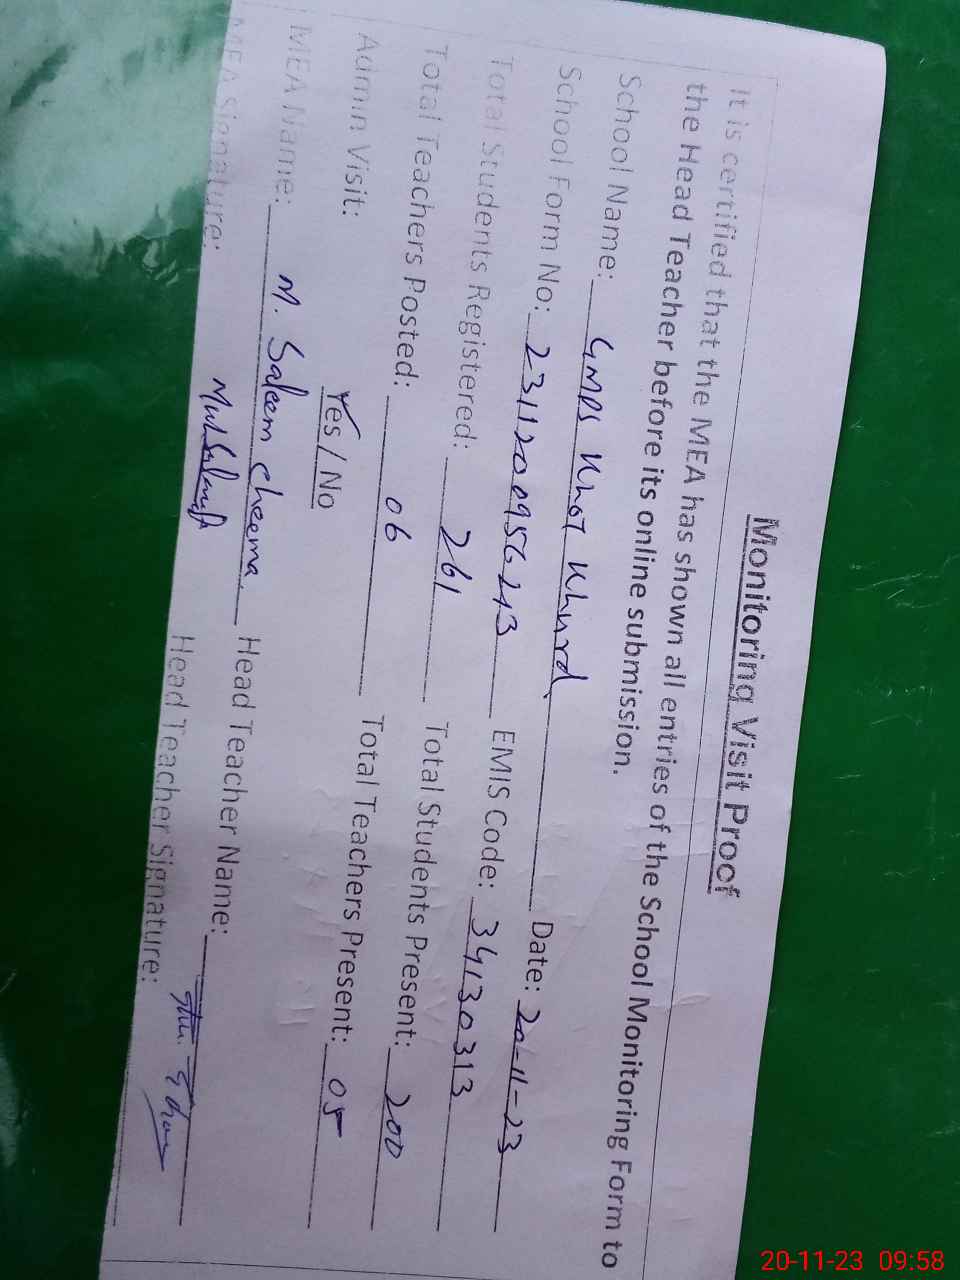 Monitoring Visit Proof
It is certified that the MEA has shown all entries of the School Monitoring Form to
the Head Teacher before its online submission.
School Name: GMPS Khot Khurd Date: 20-11-23
School Form No: 2311200956243 EMIS Code: 34130313
Total Students Registered: 261 Total Students Present: 200
Total Teachers Posted: 06 Total Teachers Present: 05
Admin Visit: Yes / No
MEA Name: M. Saleem cheema Head Teacher Name:
MEA Signature: Head Teacher Signature:
20-11-23 09:58